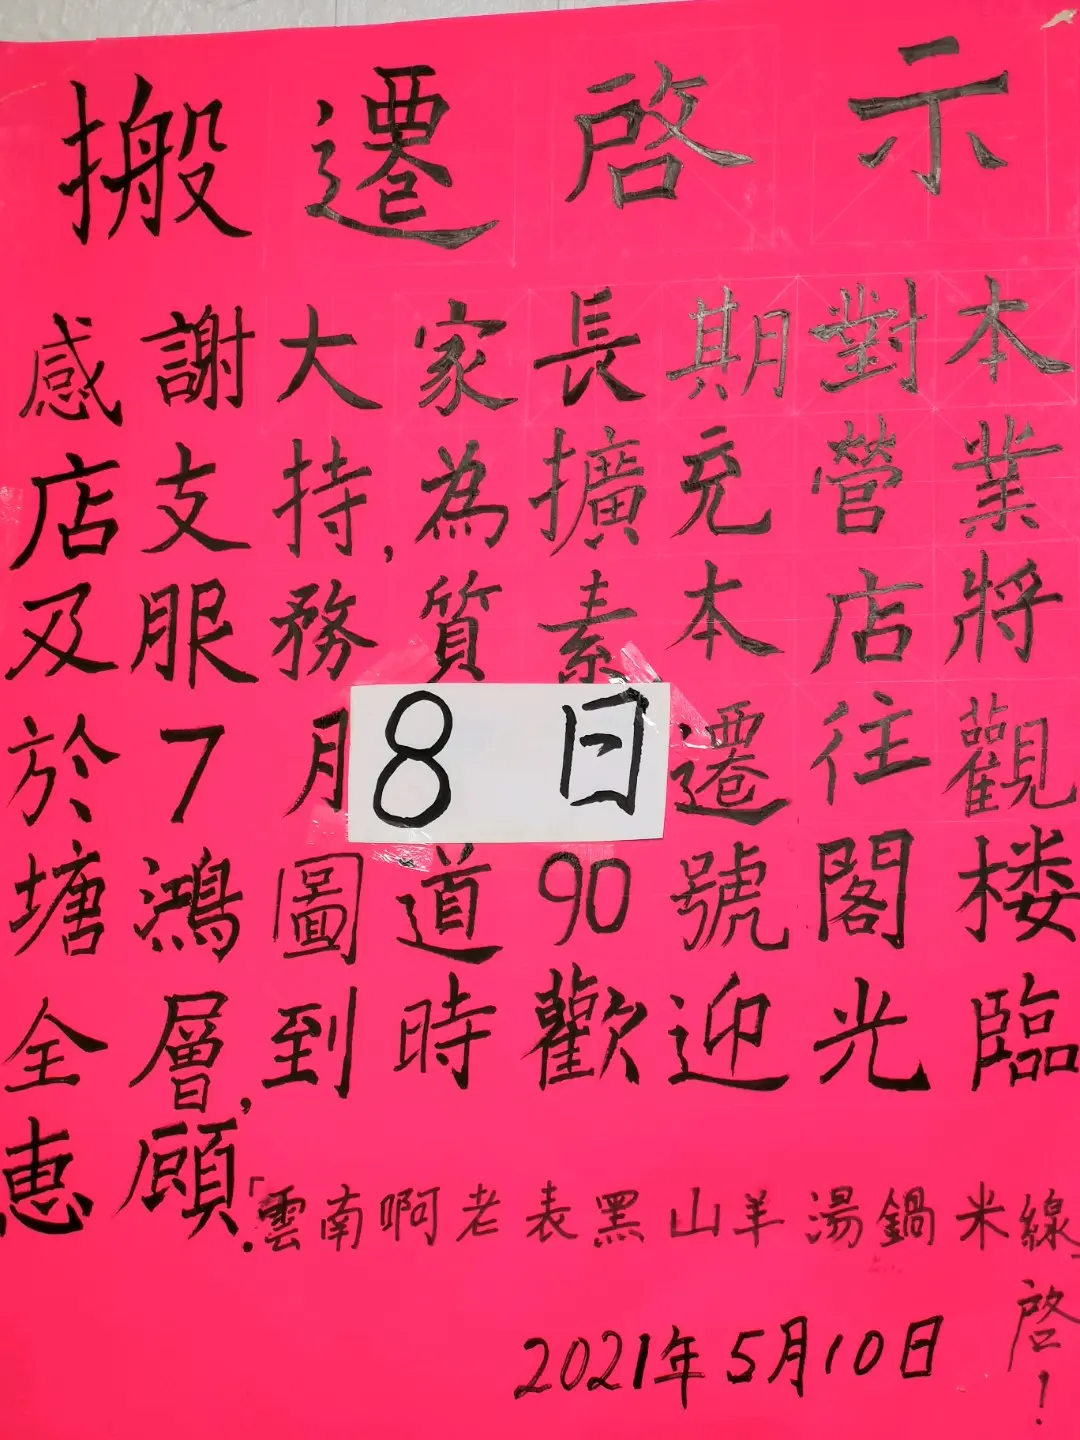 搬遷啓示
感謝大家長期對本
店支持,為擴充營業
及服務質素本店將
於7月8日遷往觀
塘鴻圖道90號閣楼
全層,到時歡迎光臨
惠顧.「雲南啊老表黑山羊湯鍋米線」
啓!
2021年5月10日